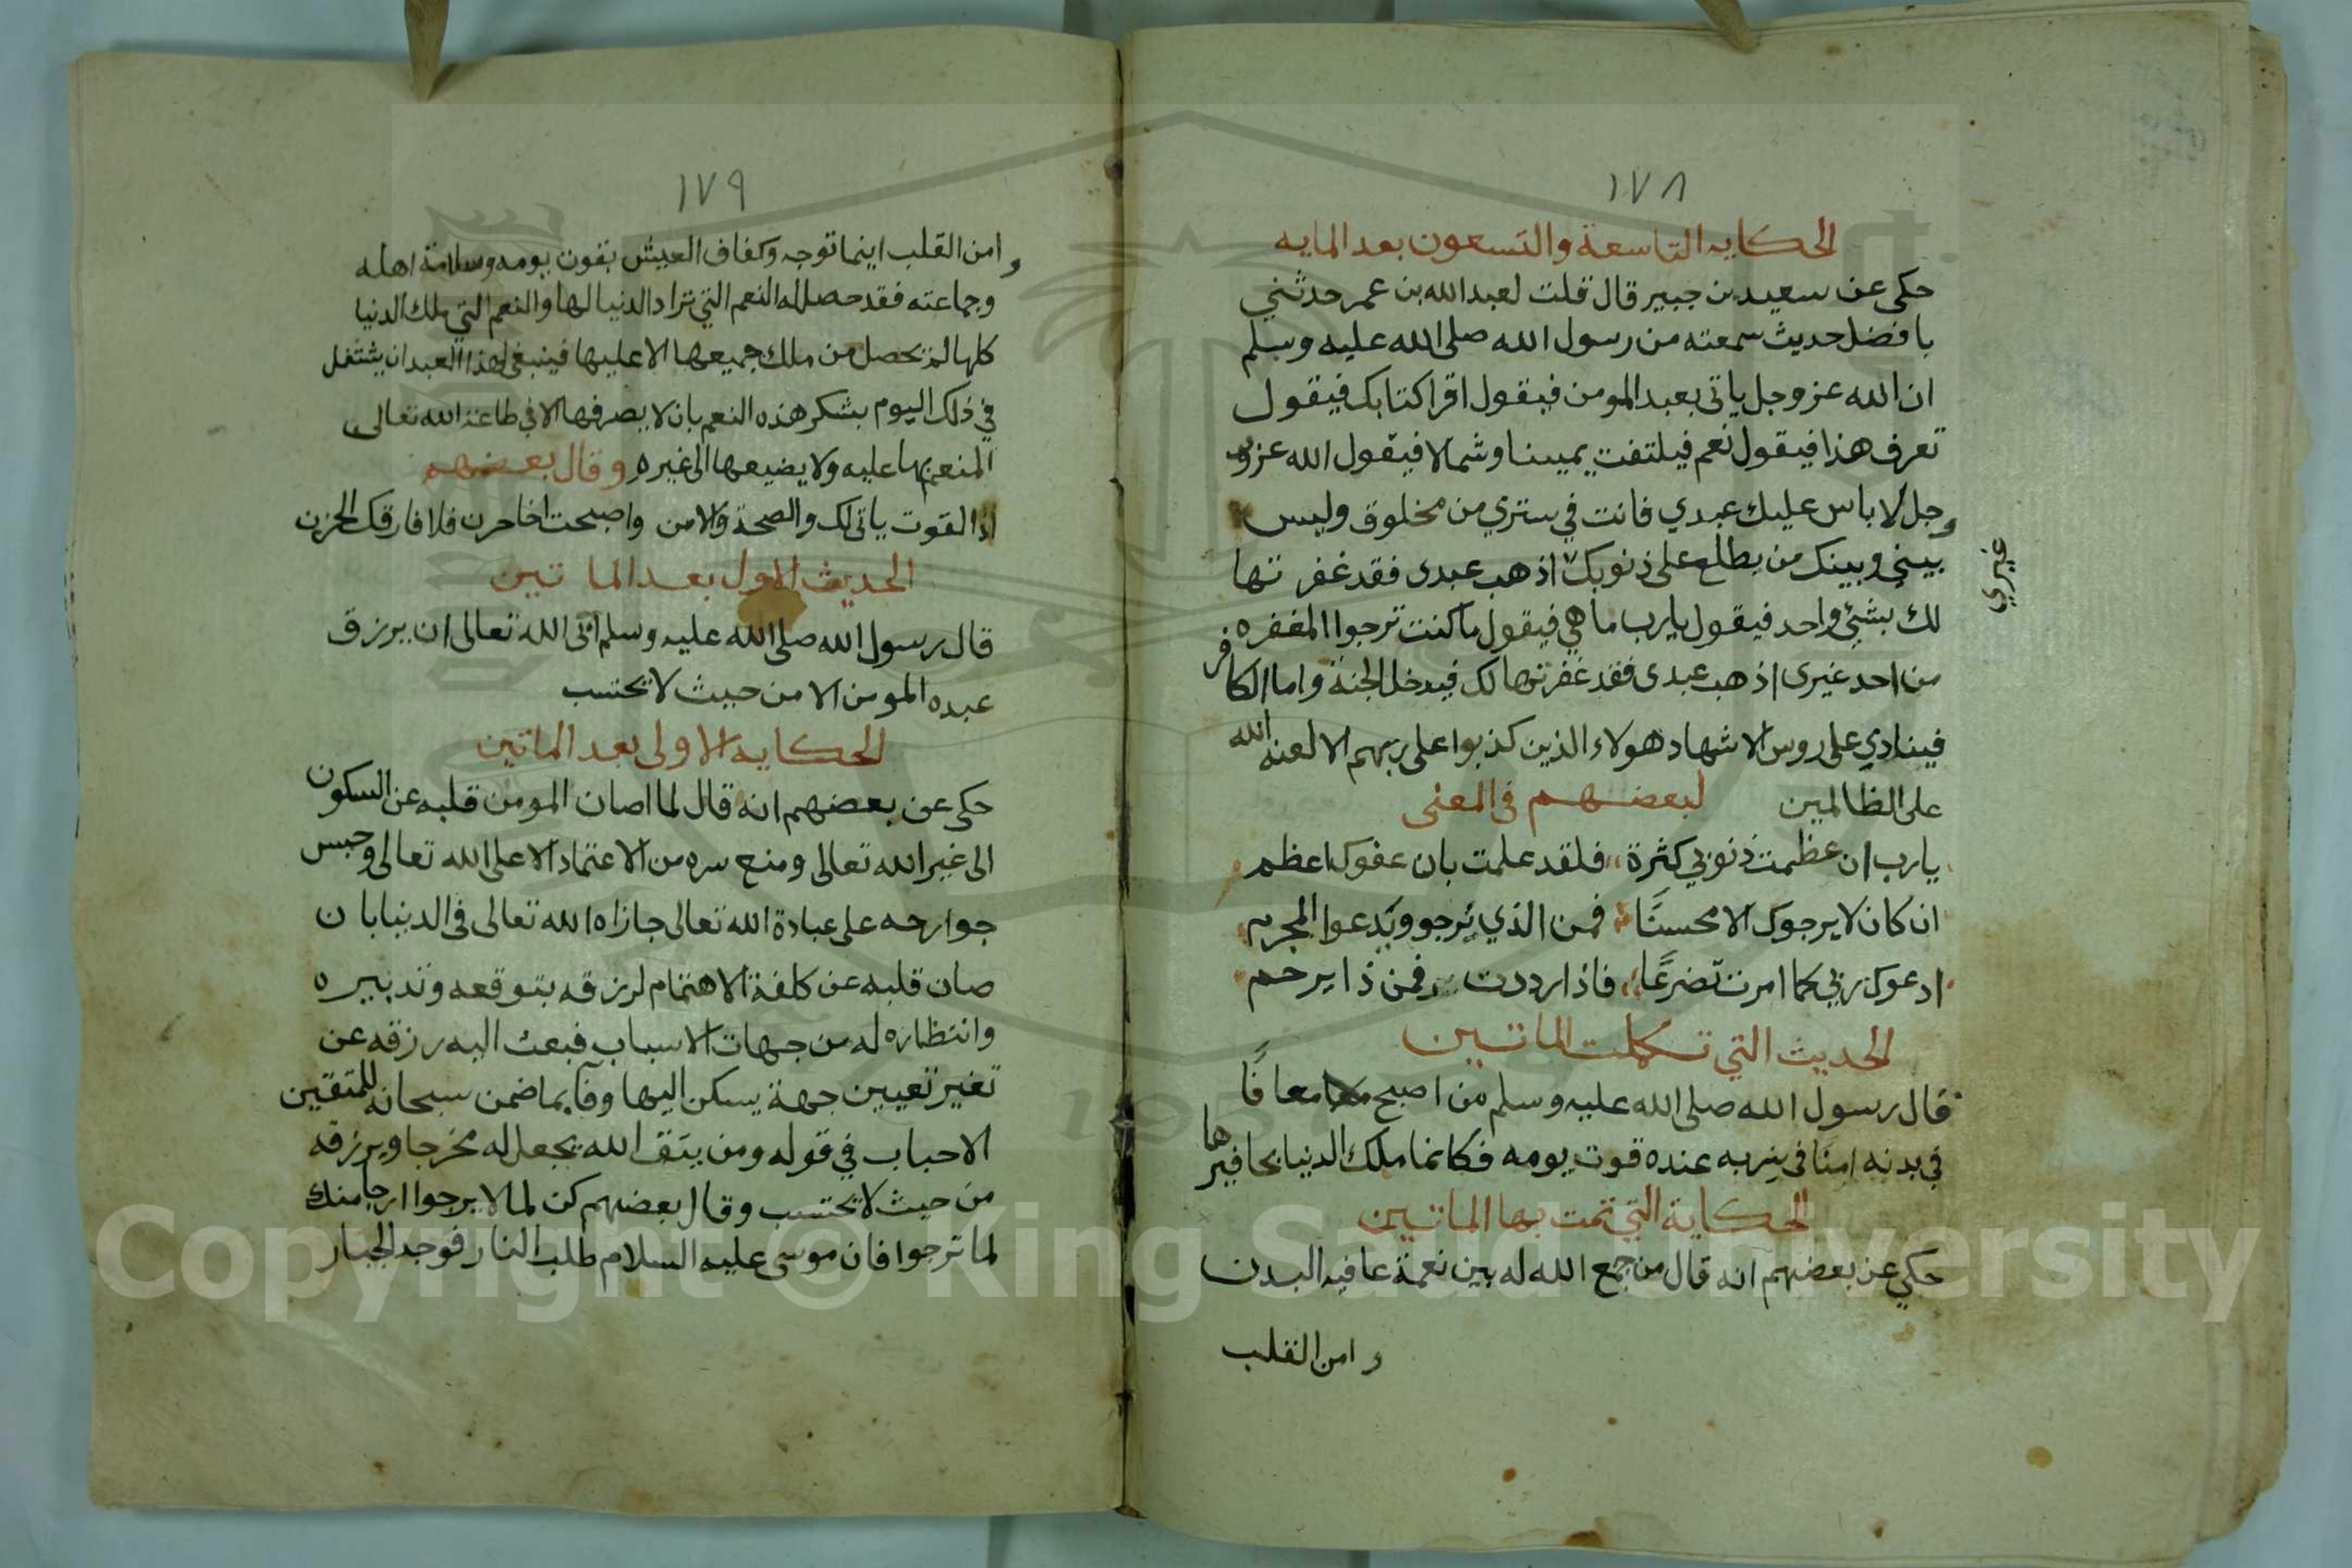 ١٧٨
الحكايه التاسعة والتسعون بعد المايه
حكى عن سعيد بن جبير قال قلت لعبد الله بن عمر حدثني
بافضل حديث سمعته من رسول الله صلى الله عليه وسلم
ان الله عز وجل ياتى بعبد المومن فيقول اقرا كتابك فيقول
تعرف هذا فيقول نعم فيلتفت يمينا وشمالا فيقول الله عز و
وجل لا باس عليك عبدي فانت في ستري من مخلوق وليس
بيني وبينك من يطلع على ذنوبك اذهب عبدى فقد غفرتها
غيري
لك بشئ واحد فيقول يارب ما هي فيقول ما كنت ترجوا المغفره
من احد غيرى اذهب عبدى فقد غفرتها لك فيدخل الجنة واما الكافر
فينادي على روس الاشهاد هولاء الذين كذبوا على ربهم الا لعنه الله
على الظالمين لبعضهم فى المعنى
يارب ان عظمت ذنوبي كثرة فلقد علمت بان عفوك اعظم
ان كان لا يرجوك الا محسنًا فمن الذي يرجو ويدعوا المجرم
ادعوك ربي كما امرت تضرعًا فاذا رددت فمن ذا يرحم
الحديث التي تكملت الماتين
قال رسول الله صلى الله عليه وسلم من اصبح معافًا
في بدنه امنًا فى سربه عنده قوت يومه فكانما ملك الدنيا بحافيرها
الحكاية التي تمت بها الماتين
حكي عن بعضهم انه قال من جمع الله له بين نعمة عافيه البدن
وامن القلب
١٧٩
وامن القلب اينما توجه وكفاف العيش بقون يومه وسلامة اهله
وجماعته فقد حصل له النعم التي تراد الدنيا لها والنعم التي ملك الدنيا
كلها لم تحصل من ملك جميعها الا عليها فينبغي لهذا العبد ان يشتغل
في ذلك اليوم بشكر هذه النعم بان لا يصرفها الا في طاعة الله تعالى
المنعم بها عليه ولا يضيعها الى غيره وقال بعضهم
اذا القوت ياتى لك والصحة والامن واصبحت اخا حزن فلا فارقك الحزن
الحديث الاول بعد الماتين
قال رسول الله صلى الله عليه وسلم اتى الله تعالى ان يرزق
عبده المومن الا من حيث لا تحتسب
الحكايه الاولى بعد الماتين
حكى عن بعضهم انه قال لما اصان المومن قلبه عن السكون
الى غير الله تعالى ومنع سره من الاعتماد الا على الله تعالى وحبس
جوارحه على عبادة الله تعالى جازاه الله تعالى فى الدنيا بان
صان قلبه عن كلفة الاهتمام لرزقه بتوقعه وتدبيره
وانتظاره له من جهات الاسباب فبعث اليه رزقه عن
تغير تعيين جهة يسكن اليها وفا بما ضمن سبحانه للمتقين
الاحباب في قوله ومن يتق الله يجعل له مخرجا ويرزقه
من حيث لا تحتسب وقال بعضهم كن لما لا يرجوا ارجا منك
لما ترجوا فان موسى عليه السلام طلب النار فوجد الجبار
Copyright © King Saud University
1957